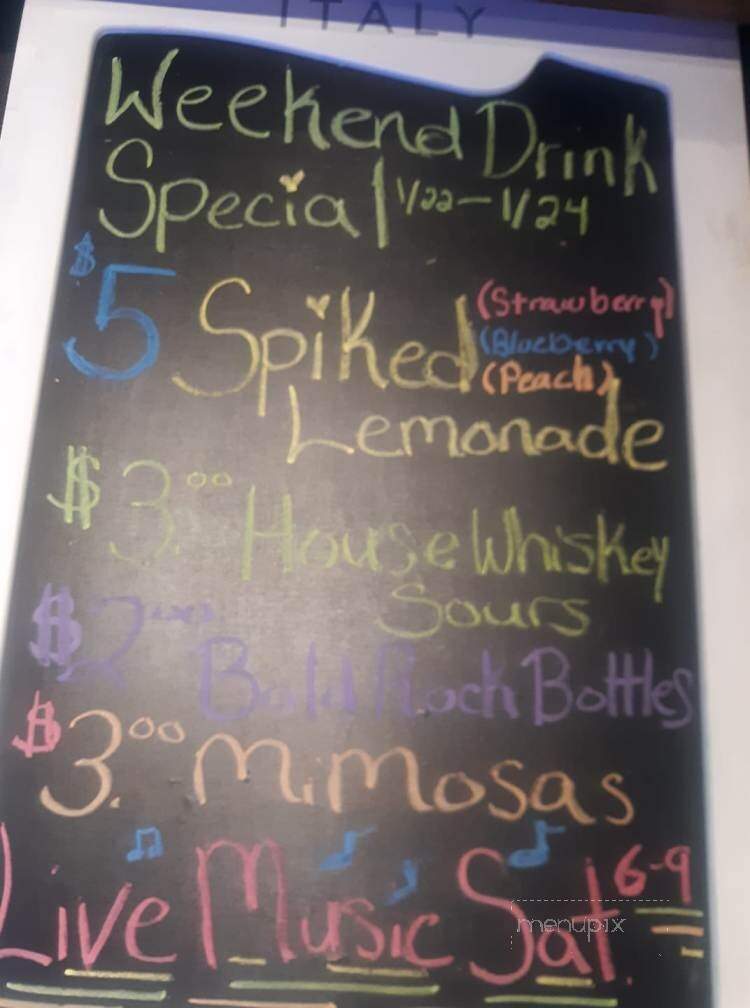 ITALY
Weekend Drink
Special 1/22-1/24
$5 Spiked (Strawberry)
(Blueberry)
(Peach)
Lemonade
$3.00 House Whiskey
Sours
$2.00 Bold Rock Bottles
$3.00 Mimosas
Live Music Sat. 6-9
menupix